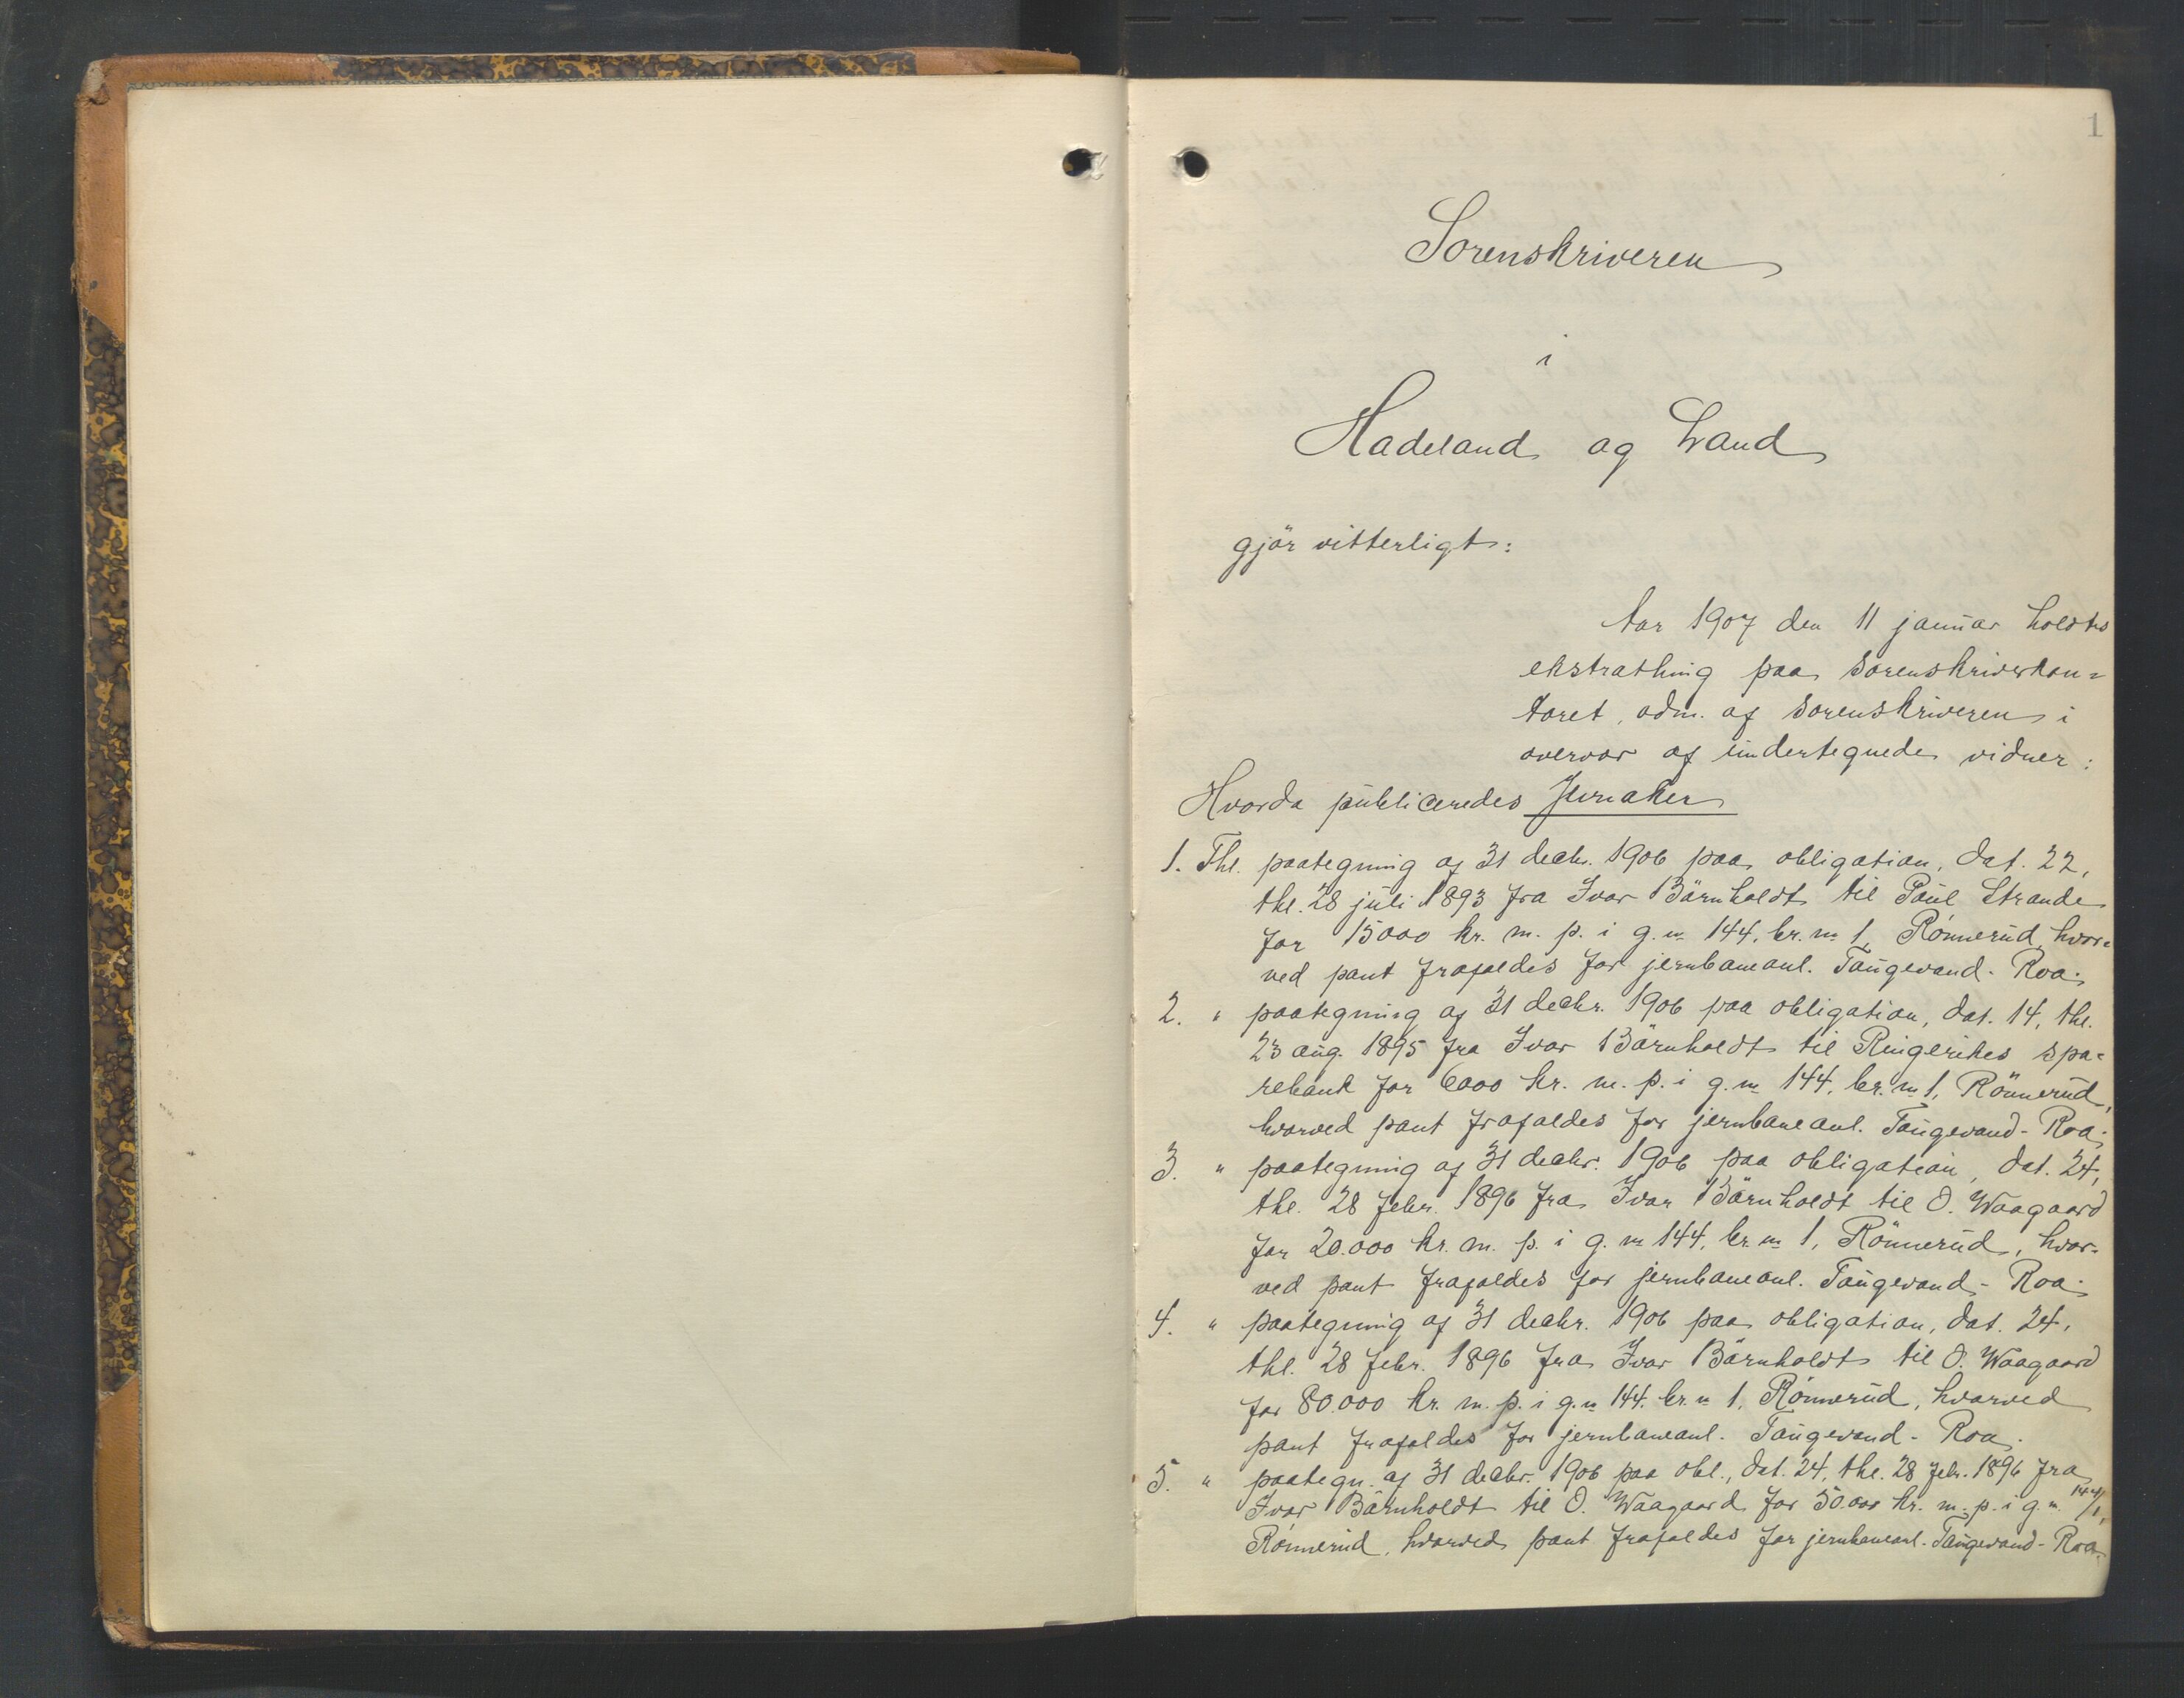 1
Sorenskriveren
i
Hadeland og Land
gjör vitterligt:
Aar 1907 den 11 januar holdtes
ekstrathing paa sorenskriverkon=
toret, adm. af sorenskriveren i
overvær af undertegnede vidner:
Hvorda publiceredes Jevnaker
1. Thl. paategning af 31 decbr. 1906 paa obligation, dat. 22,
thl. 28 juli 1893 fra Ivar Börnholdt til Paul Strande
for 15000 kr. m. p. i g. no 144, br. no 1, Rönnerud, hvor=
ved pant frafaldes for jernbaneanl. Tangevand - Roa.
2. " paategning af 31 decbr. 1906 paa obligation, dat. 14, thl.
23 aug. 1895 fra Ivar Börnholdt til Ringerikes spa=
rebank for 6000 kr. m. p. i g. no 144, br. no 1, Rönnerud,
hvorved pant frafaldes for jernbaneanl. Tangevand - Roa.
3. " paategning af 31 decbr. 1906 paa obligation, dat. 24,
thl. 28 febr. 1896 fra Ivar Börnholdt til O. Waagaard
for 20.000 kr. m. p. i g. no 144, br. no 1, Rönnerud, hvor=
ved pant frafaldes for jernbaneanl. Tangevand - Roa.
4. " paategning af 31 decbr. 1906 paa obligation, dat. 24,
thl. 28 febr. 1896 fra Ivar Börnholdt til O. Waagaard
for 80.000 kr. m. p. i g. no 144, br. no 1, Rönnerud, hvorved
pant frafaldes for jernbaneanl. Tangevand - Roa.
5. " paategn. af 31 decbr. 1906 paa obl., dat. 24, thl. 28 febr. 1896 fra
Ivar Börnholdt til O. Waagaard for 50.000 kr. m. p. i g. n. 144/1,
Rönnerud, hvorved pant frafaldes for jernbaneanl. Tangevand - Roa.